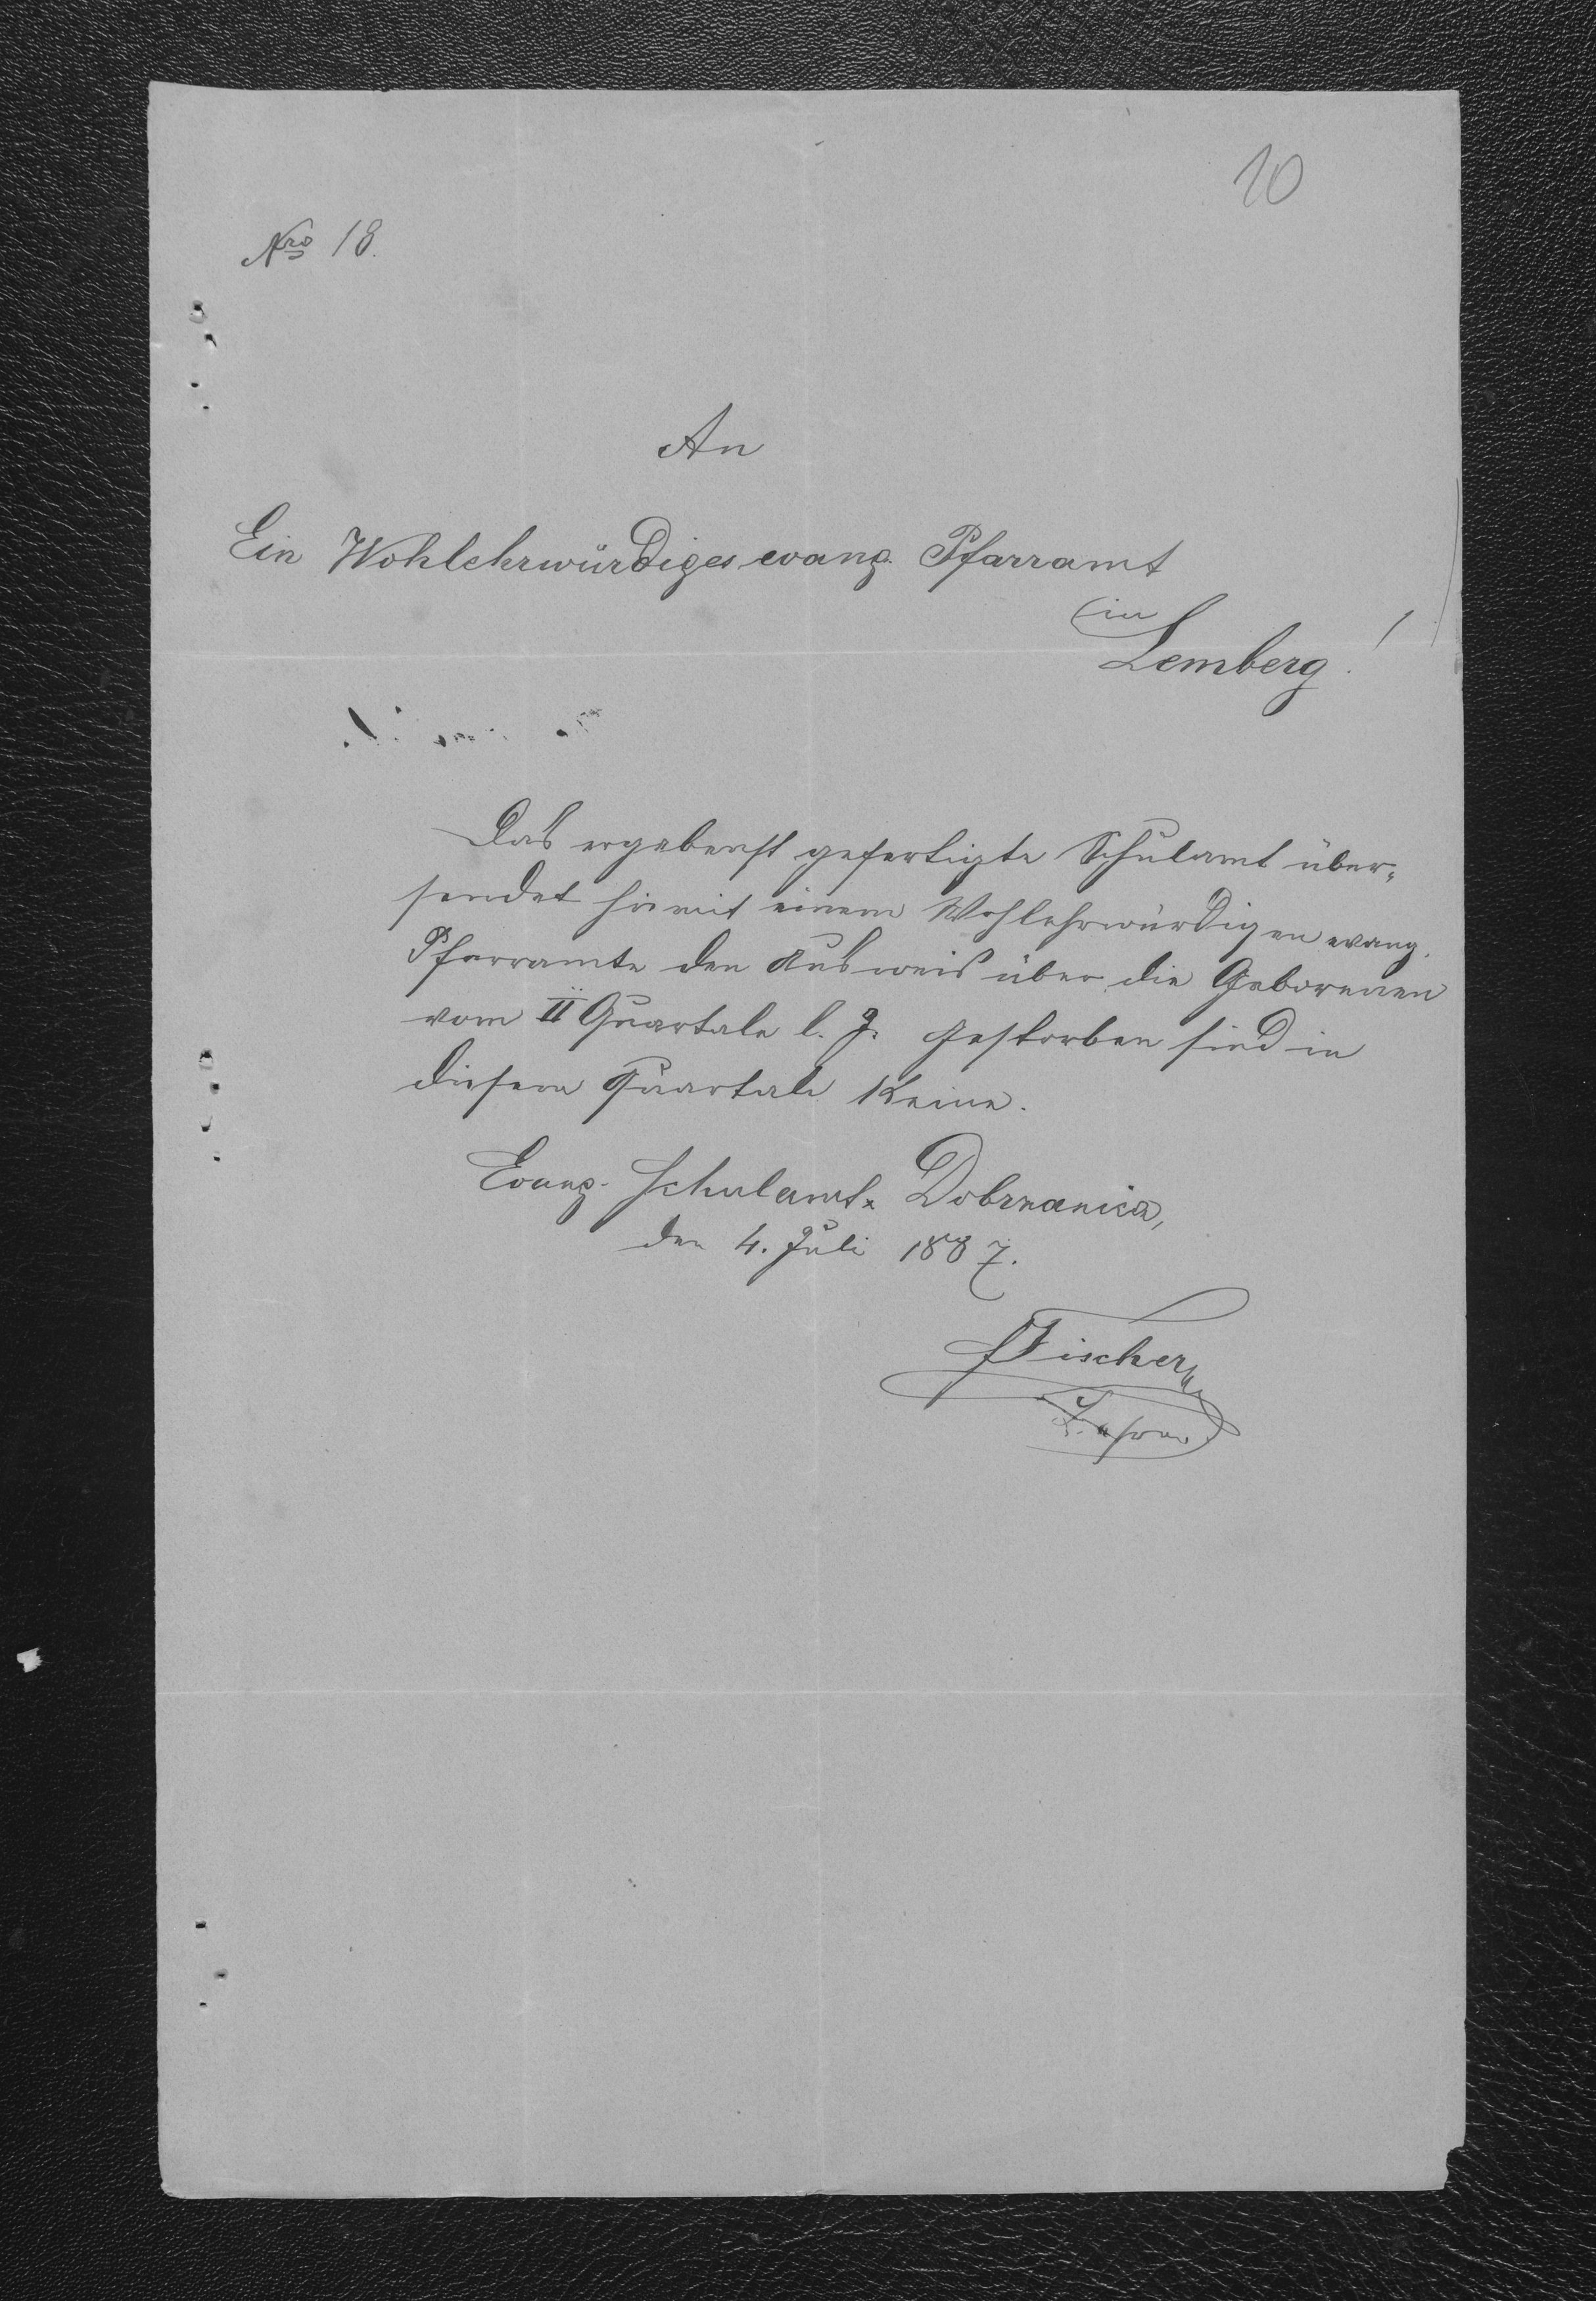 10
Nro 18.
An
Ein Wohlehrwürdiges evang. Pfarramt
in
Lemberg!
Das ergebenst gefertigte Schulamt über-
sendet hiemit einem Wohlehrwürdigen evang.
Pfarramte den Ausweis über die Geborenen
vom II Quartale l. J. Gestorben sind in
diesem Quartale Keine.
Evang. Schulamt Dobrzanica,
den 4. Juli 1887.
Fischer
Lehrer